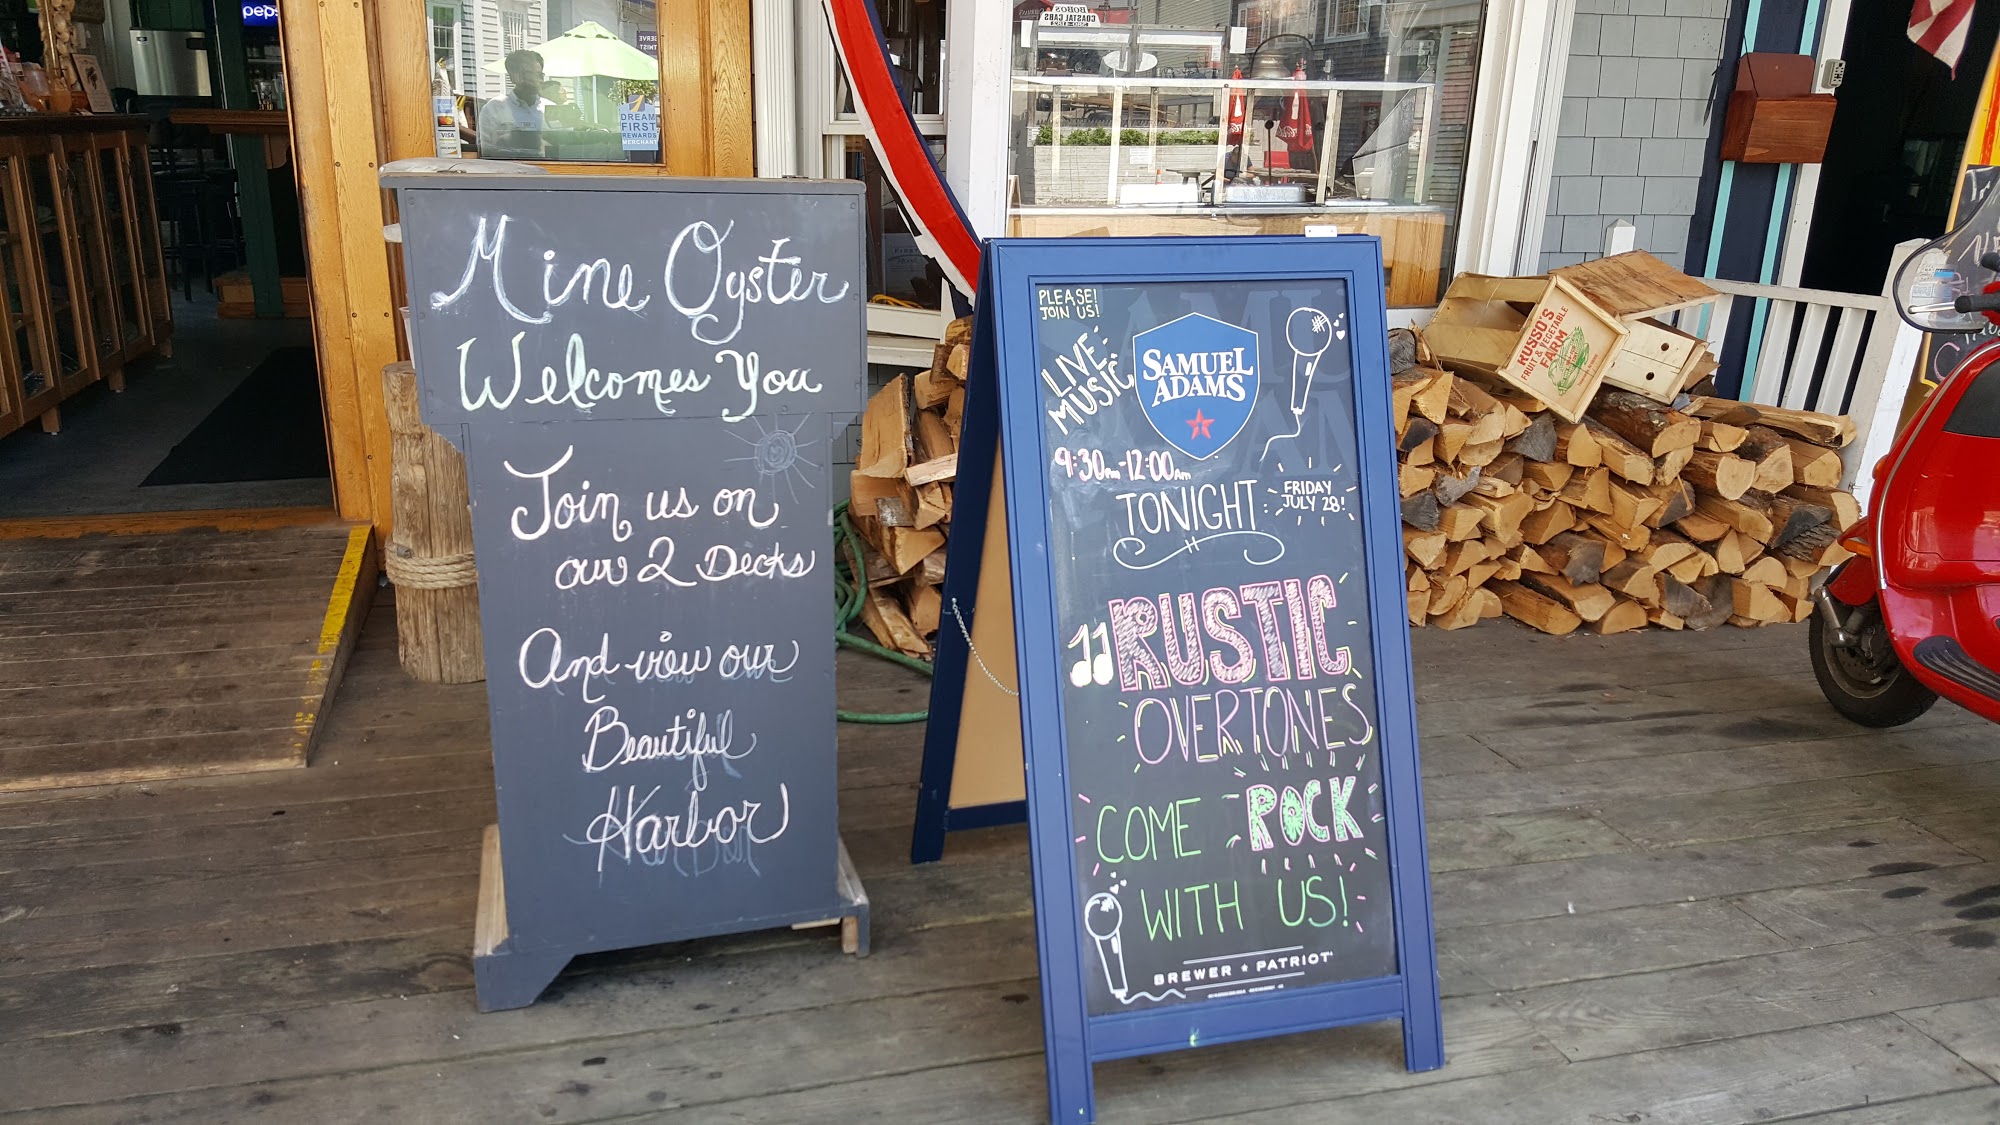 pepsi
VISA
DREAM
FIRST
REWARDS
MERCHANT
BOBO'S
COASTAL CABS
Mine Oyster
Welcomes You
Join us on
our 2 Decks
And view our
Beautiful
Harbor
PLEASE!
JOIN US!
LIVE
MUSIC
SAMUEL
ADAMS
9:30PM-12:00AM
TONIGHT:
FRIDAY
JULY 28!
RUSTIC
OVERTONES
COME ROCK
WITH US!
BREWER ★ PATRIOT
RUSSO'S
FRUIT & VEGETABLE
FARM